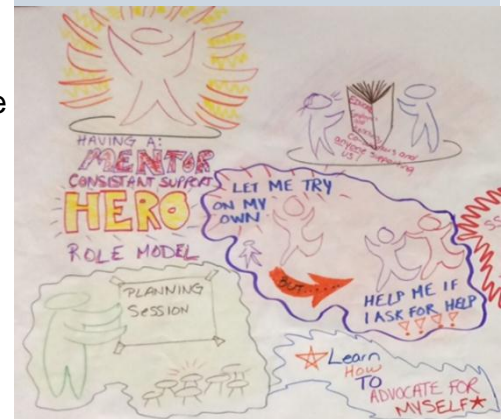 e
HAVING A:
MENTOR
CONSISTANT SUPPORT
HERO
ROLE MODEL
anyone supporting
US!
LET ME TRY
ON MY
OWN
BUT.....
HELP ME IF
I ASK FOR HELP
????
PLANNING
SESSION
Learn
How
TO
ADVOCATE FOR
MYSELF